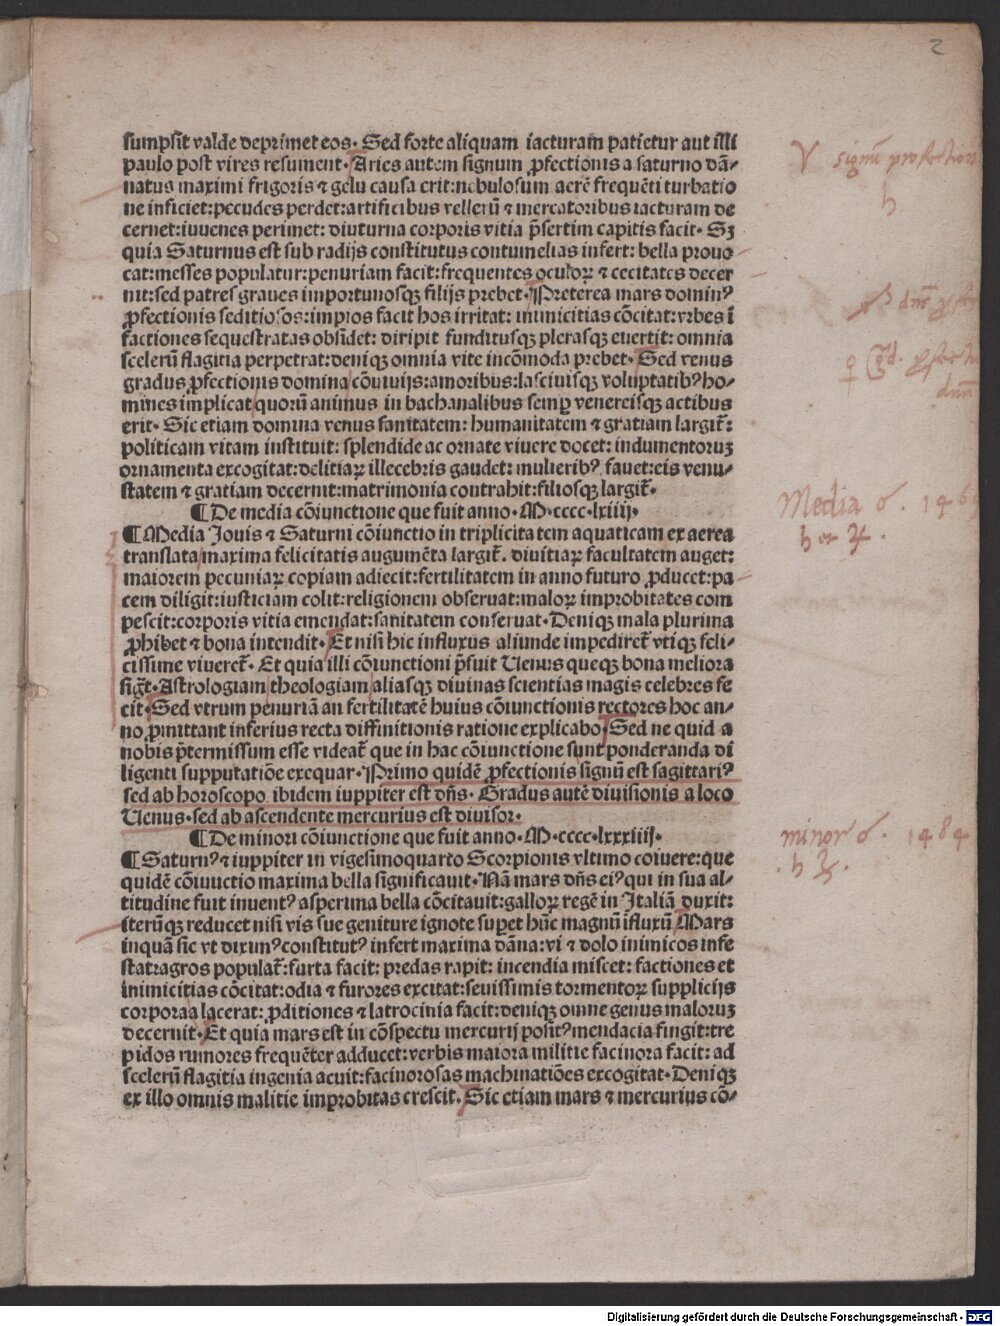 2
sumpsit valde deprimet eos. Sed forte aliquam iacturam patietur aut illi
paulo post vires resument. Aries autem signum ꝓfectionis a saturno dā-
natus maximi frigoris ⁊ gelu causa erit: nebulosum aerē frequēti turbatio
ne inficiet: pecudes perdet: artificibus vellerū ⁊ mercatoribus iacturam de
cernet: iuuenes perimet: diuturna corporis vitia p̄sertim capitis facit. Sꝫ
quia Saturnus est sub radijs constitutus contumelias infert: bella prouo
cat: messes populatur: penuriam facit: frequentes oculoꝝ ⁊ cecitates decer
nit: sed patres graues importunosqꝫ filijs prebet. Preterea mars dominꝰ
ꝓfectionis seditiosos: impios facit hos irritat: inimicitias cōcitat: vrbes ī
factiones sequestratas obsidet: diripit funditusqꝫ plerasqꝫ euertit: omnia
scelerū flagitia perpetrat: deniqꝫ omnia vite incōmoda prebet. Sed venus
gradus ꝓfectionis domina cōuiuijs: amoribus: lasciuisqꝫ voluptatibꝰ ho-
mines implicat quorū animus in bachanalibus semꝑ venereisqꝫ actibus
erit. Sic etiam domina venus sanitatem: humanitatem ⁊ gratiam largit᷑:
politicam vitam instituit: splendide ac ornate viuere docet: indumentoruꝫ
ornamenta excogitat: delitiaꝝ illecebris gaudet: mulieribꝰ fauet: eis venu-
statem ⁊ gratiam decernit: matrimonia contrahit: filiosqꝫ largit᷑.
¶ De media cōiunctione que fuit anno. M.cccc.lxiiij.
¶ Media Iouis ⁊ Saturni cōiunctio in triplicita tem aquaticam ex aerea
translata maxima felicitatis augumēta largit᷑. diuitiaꝝ facultatem auget:
maiorem pecuniaꝝ copiam adiecit: fertilitatem in anno futuro ꝓducet: pa
cem diligit: iusticiam colit: religionem obseruat: maloꝝ improbitates com
pescit: corporis vitia emendat: sanitatem conseruat. Deniqꝫ mala plurima
ꝓhibet ⁊ bona intendit. Et nisi hic influxus aliunde impediret᷑ vtiqꝫ feli-
cissime viueret᷑. Et quia illi cōiunctioni p̄fuit Venus queqꝫ bona meliora
sigt᷑. Astrologiam theologiam aliasqꝫ diuinas scientias magis celebres fe
cit. Sed vtrum penuriā an fertilitatē huius cōiunctionis rectores hoc an-
no ꝓmittant inferius recta diffinitionis ratione explicabo. Sed ne quid a
nobis p̄termissum esse videat᷑ que in hac cōiunctione sunt ponderanda di
ligenti supputatiōe exequar. Primo quidē ꝓfectionis signū est sagittariꝰ
sed ab horoscopo ibidem iuppiter est dn̄s. Gradus autē diuisionis a loco
Venus. sed ab ascendente mercurius est diuisor.
¶ De minori cōiunctione que fuit anno. M.cccc.lxxxiiij.
¶ Saturnꝰ ⁊ iuppiter in vigesimoquarto Scorpionis vltimo coiuere: que
quidē cōiunctio maxima bella significauit. Nā mars dn̄s eiꝰ qui in sua al-
titudine fuit inuentꝰ asperima bella cōcitauit: galloꝝ regē in Italiā duxit:
iterūqꝫ reducet nisi vis sue geniture ignote suꝑet hūc magnū īfluxū Mars
inquā sic vt diximꝰ constitutꝰ infert maxima dāna: vi ⁊ dolo inimicos infe
stat: agros populat᷑: furta facit: predas rapit: incendia miscet: factiones et
inimicitias cōcitat: odia ⁊ furores excitat: seuissimis tormentoꝝ supplicijs
corpora lacerat: ꝓditiones ⁊ latrocinia facit: deniqꝫ omne genus maloruꝫ
decernit. Et quia mars est in cōspectu mercurij positꝰ mendacia fingit: tre
pidos rumores frequēter adducet: verbis maiora militie facinora facit: ad
scelerū flagitia ingenia acuit: facinorosas machinatiōes excogitat. Deniqꝫ
ex illo omnis malitie improbitas crescit. Sic etiam mars ⁊ mercurius cō-
♈ signū profection
♄
Media ☌. 146
♄ et ♃.
minor ☌. 1484
♄ ♃.
Digitalisierung gefördert durch die Deutsche Forschungsgemeinschaft - DFG